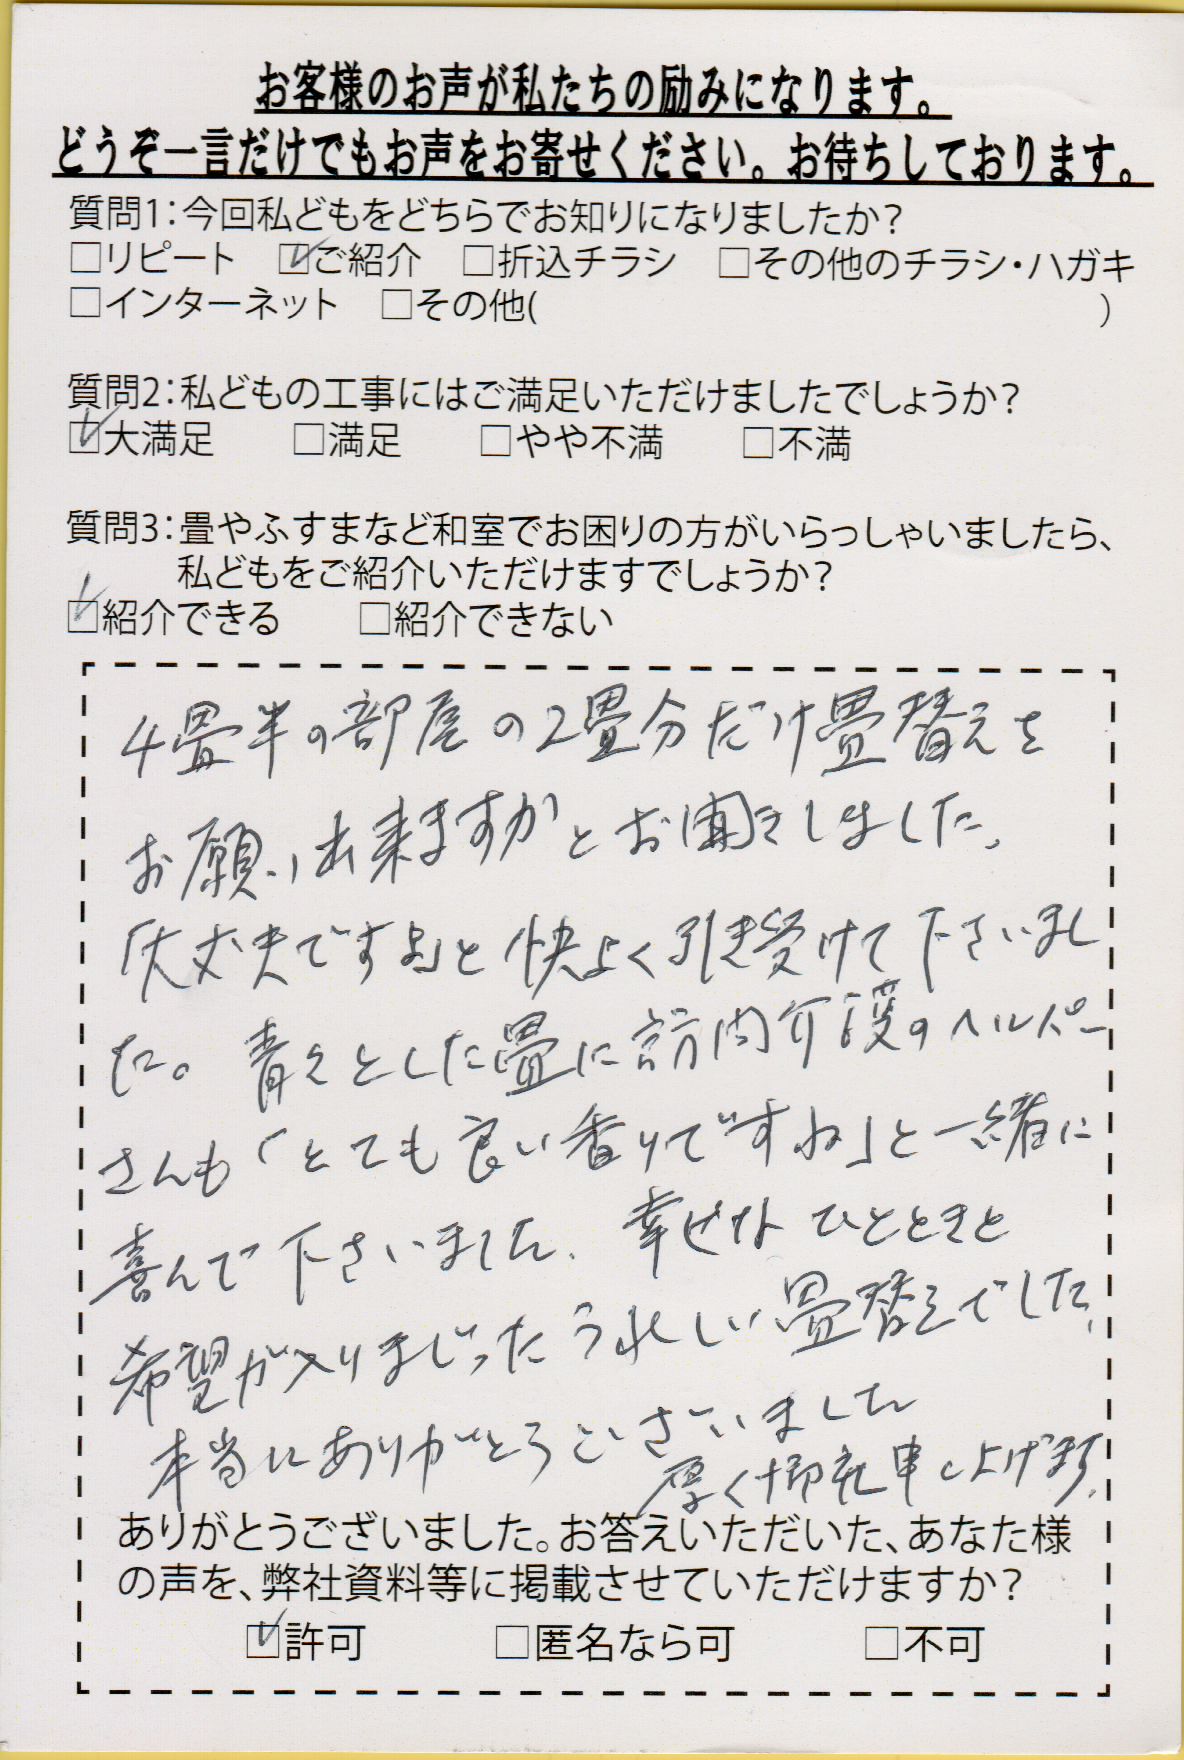 お客様のお声が私たちの励みになります。
どうぞ一言だけでもお声をお寄せください。お待ちしております。
質問1：今回私どもをどちらでお知りになりましたか？
□リピート ☑ご紹介 □折込チラシ □その他のチラシ・ハガキ
□インターネット □その他( )
質問2：私どもの工事にはご満足いただけましたでしょうか？
☑大満足 □満足 □やや不満 □不満
質問3：畳やふすまなど和室でお困りの方がいらっしゃいましたら、
私どもをご紹介いただけますでしょうか？
☑紹介できる □紹介できない
4畳半の部屋の2畳分だけ畳替えを
お願い出来ますかとお聞きしました。
「大丈夫ですよ」と快よく引き受けて下さいまし
た。青々とした畳に訪問介護のヘルパー
さんも「とても良い香りですね」と一緒に
喜んで下さいました。幸せなひとときと
希望が入りまじったうれしい畳替えでした。
本当にありがとうございました
厚く御礼申し上げます。
ありがとうございました。お答えいただいた、あなた様
の声を、弊社資料等に掲載させていただけますか？
☑許可 □匿名なら可 □不可